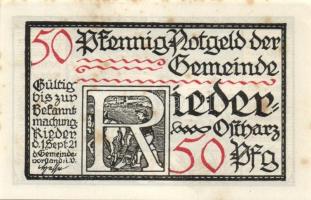 50 Pfennig Notgeld der
Gemeinde
Rieder-
Ostharz
50 Pfg
Gültig
bis zur
Bekannt
machung
Rieder
d. 1 Sept. 21
d Gemeinde-
vorstand i.V.